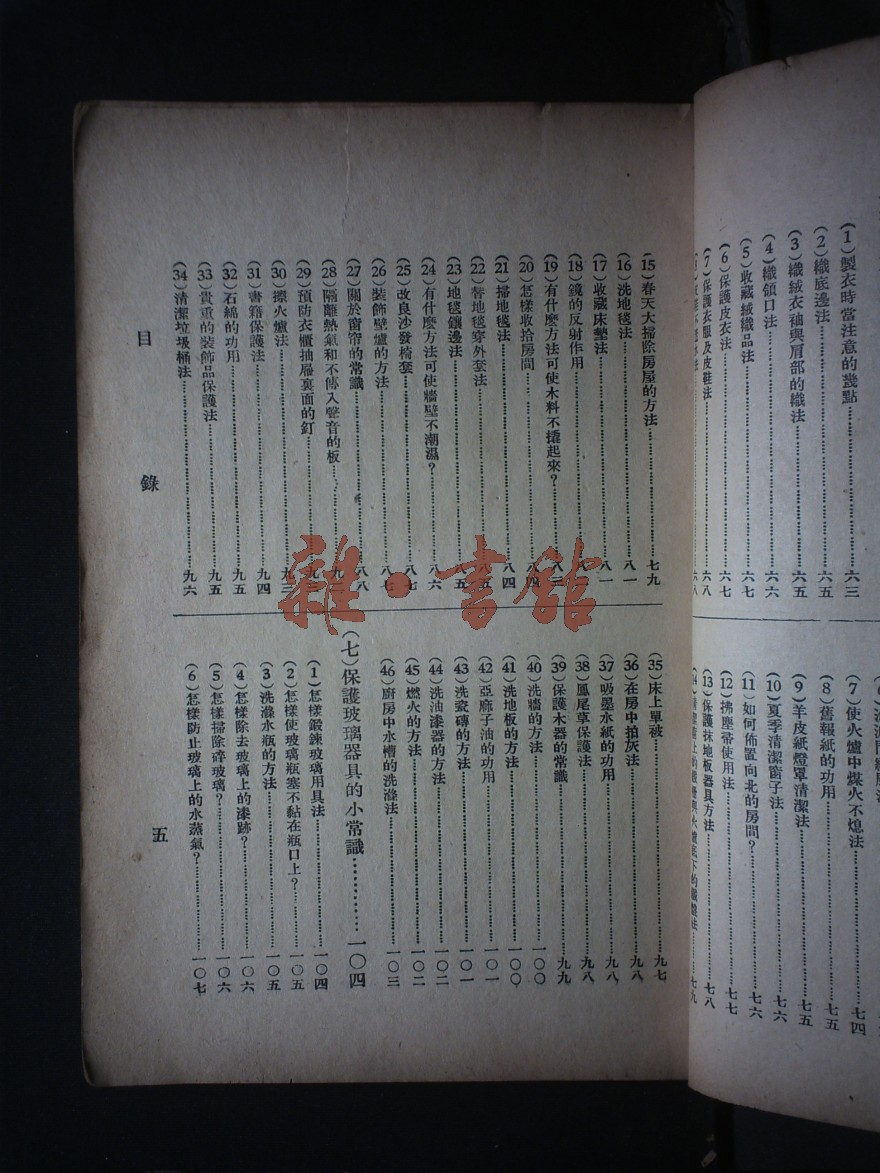 (1)製衣時當注意的幾點六三
(2)織底邊法六五
(3)織絨衣袖與肩部的織法六五
(4)織領口法六六
(5)收藏絨織品法六七
(6)保護皮衣法六七
(7)保護衣服及皮鞋法六八
(7)使火爐中煤火不熄法七四
(8)舊報紙的功用七五
(9)羊皮紙燈罩清潔法七五
(10)夏季清潔窗子法七六
(11)如何佈置向北的房間?七六
(12)拂塵帚使用法七七
(13)保護抹地板器具方法七八
(15)春天大掃除房屋的方法七九
(16)洗地毯法八一
(17)收藏床墊法八一
(18)鏡的反射作用
(19)有什麼方法可使木料不撬起來?八三
(20)怎樣收拾房間八四
(21)掃地毯法八四
(22)替地毯穿外套法八五
(23)地毯鑲邊法八五
(24)有什麼方法可使牆壁不潮濕?八六
(25)改良沙發椅套八七
(26)裝飾壁爐的方法八七
(27)關於窗帘的常識八八
(28)隔離熱氣和不傳入聲音的板
(29)預防衣櫃抽屜裏面的釘
(30)擦火爐法九三
(31)書籍保護法九四
(32)石綿的功用九五
(33)貴重的裝飾品保護法九五
(34)清潔垃圾桶法九六
(35)床上單被九七
(36)在房中拍灰法九八
(37)吸墨水紙的功用九八
(38)鳳尾草保護法九八
(39)保護木器的常識九九
(40)洗牆的方法一〇〇
(41)洗地板的方法一〇〇
(42)亞麻子油的功用一〇一
(43)洗瓷磚的方法一〇一
(44)洗油漆器的方法一〇二
(45)燃火的方法一〇二
(46)廚房中水槽的洗滌法一〇三
(七)保護玻璃器具的小常識一〇四
(1)怎樣鍛鍊玻璃用具法一〇四
(2)怎樣使玻璃瓶塞不黏在瓶口上?一〇五
(3)洗滌水瓶的方法一〇五
(4)怎樣除去玻璃上的漆跡?一〇六
(5)怎樣掃除碎玻璃?一〇六
(6)怎樣防止玻璃上的水蒸氣?一〇七
目錄
五
雜·書館